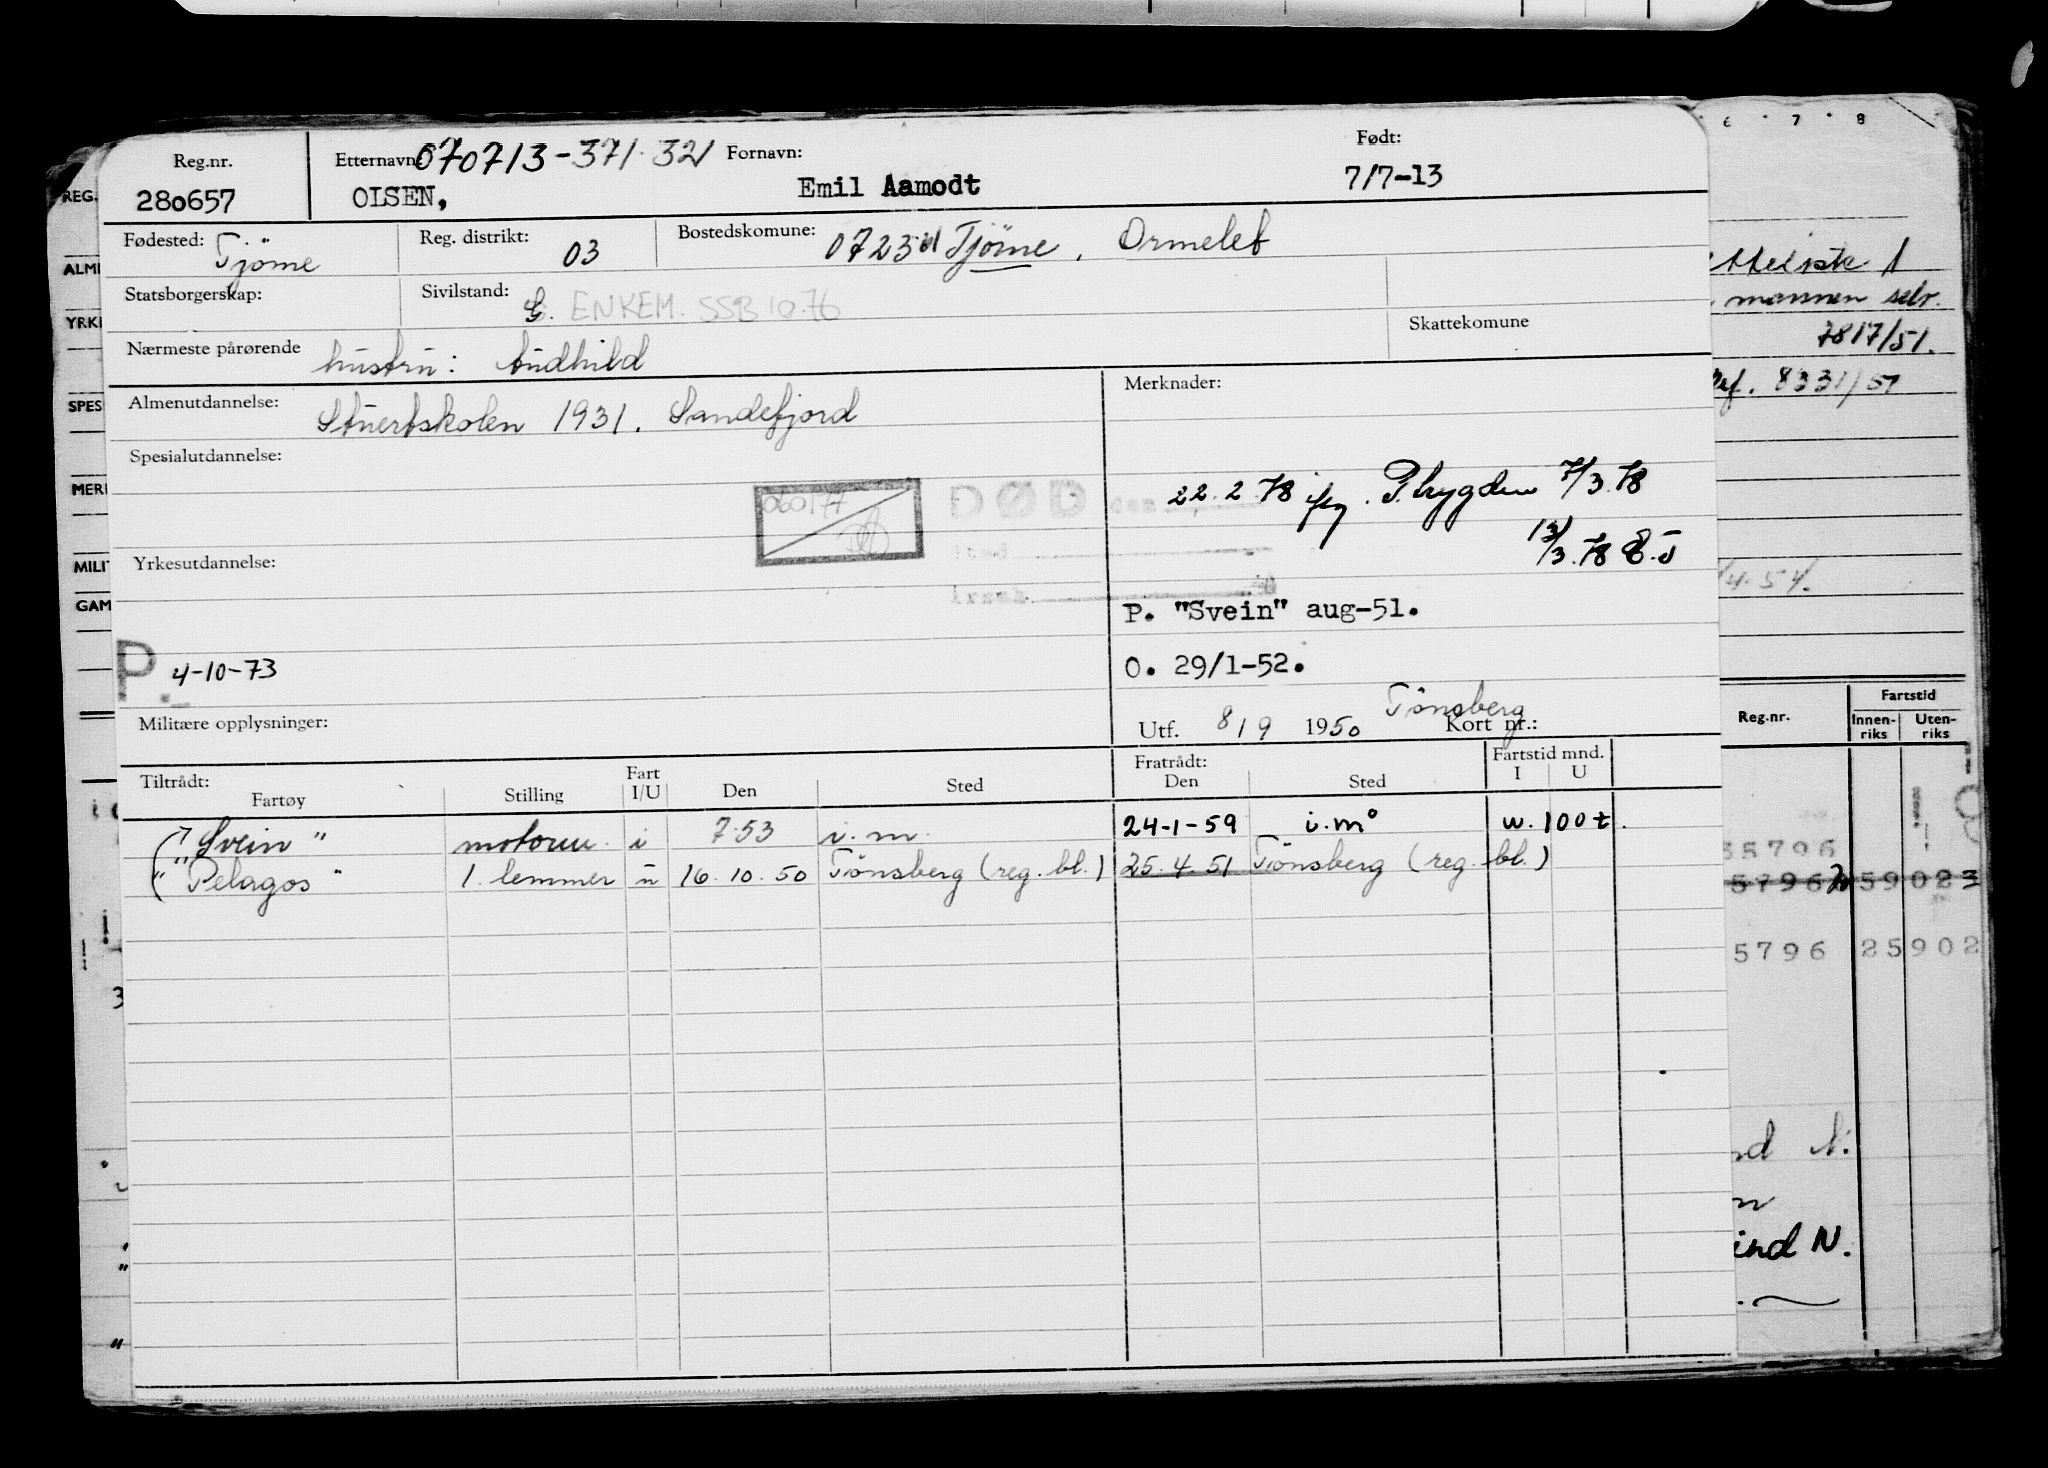 6 7 8
Reg.nr. Etternavn: 070713-371.32 Fornavn: Født:
280657 OLSEN, Emil Aamodt 7/7-13
REG.
Fødested: Tjöme Reg. distrikt: 03 Bostedskomune: 0723 Tjöme, Ormelet
ALM
Statsborgerskap: Sivilstand: G. ENKEM. SSB 10.76
mannen selv.
YRK
Nærmeste pårørende hustru: Audhild Skattekomune
7817/51.
Almenutdannelse: Stuertskolen 1931. Sandefjord Merknader:
8331/51
SPES
Spesialutdannelse:
MER
060177
DØD den
22.2.78 P.trygden 7/3.78
sted
13/3.78
Yrkesutdannelse:
MILIT
GAM
årsak
P. "Svein" aug-51.
P. 4-10-73
O. 29/1-52.
Militære opplysninger: Utf. 8/9 1950 Tönsberg Kort nr.:
Reg.nr. Fartstid
Innen-riks Uten-riks
Tiltrådt: Fratrådt: Fartstid mnd.
Fartøy Stilling Fart I/U Den Sted Den Sted I U
"Svein" i 7.53 i.m. 24-1-59 i.m. w. 100 t.
"Pelagos" 1. lemmer u 16.10.50 Tönsberg (reg. bl.) 25.4.51 Tönsberg (reg. bl.)
35796
5796 5902
5796 25902
ind N.